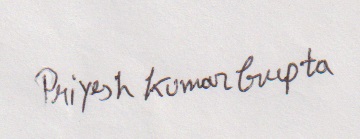 Priyesh Kumar Gupta